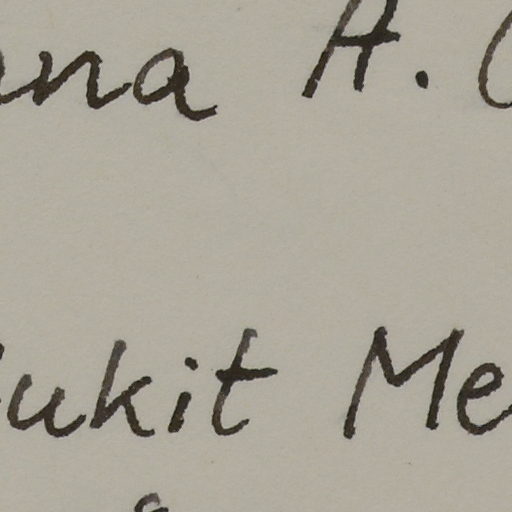 na A.
ukit Me